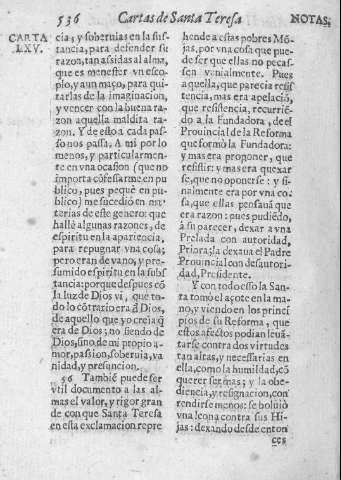 536 Cartas de Santa Teresa NOTAS.
CARTA
LXV.
cia; y soberuias en la sus-
tancia, para defender su
razon, tan assidas al alma,
que es menester vn esco-
plo, y aun maço, para qui-
tarlas de la imaginacion,
y vencer con la buena ra-
zon aquella maldita ra-
zon. Y de esto a cada pas-
so nos passa. A mi por lo
menos, y particularmen-
te en vna ocasion (que no
importa cõfessarme en pu
blico, pues pequè en pu-
blico) me sucediò en ma-
terias de este genero: que
hallè algunas razones, de
espiritu en la apariecia,
para repugnar vna cosa;
pero eran de vano, y pre-
sumido espiritu en la subs-
tancia: porque despues cõ
la luz de Dios vi, que to-
do lo cõtrario era ð Dios,
de aquello que yo creìa q̃
era de Dios; no siendo de
Dios, sino de mi propio a-
mor, passion, soberuia, va
nidad, y presuncion.
56 Tambiẽ puede ser
vtil documento a las al-
mas el valor, y rigor gran
de con que Santa Teresa
en esta exclamacion repre
hende a estas pobres Mõ-
jas, por vna cosa que pue-
de ser que ellas no pecas-
sen venialmente. Pues
aquella, que parecia resis
tencia, mas era apelaciõ,
que resistencia, recurriẽ-
do a la Fundadora, de el
Prouincial de la Reforma
que formò la Fundadora:
y mas era progoner, que
resistir: y mas era quexar
se, que no oponerse: y fi-
nalmente era por vna co-
sa, que ellas pensauã que
era razon: pues pudiẽdo,
à su parecer, dexar a vna
Prelada con autoridad,
Priora; la dexaua el Padre
Prouincial con desautori-
dad, Presidente.
Y con todo esso la San-
ta tomò el açote en la ma-
no, y viendo en los princi
pios de su Reforma, que
estos afectos podian leuã-
tarse contra dos virtudes
tan altas, y necessarias en
ella, como la humildad, cõ
querer ser mas; y la obe-
diencia, y resignacion, con
no rendirse menos: se boluiò
vna leona contra sus Hi-
jas: dexando desde enton
ces